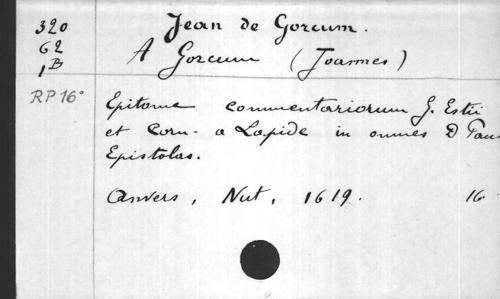 320
62
1B
RP 16°
Jean de Gorcum.
A Gorcum (Joannes)
Epitome commentariorum G. Estii
et Corn. a Lapide in omnes D Pau
Epistolas.
Anvers, Nut, 1619. 16